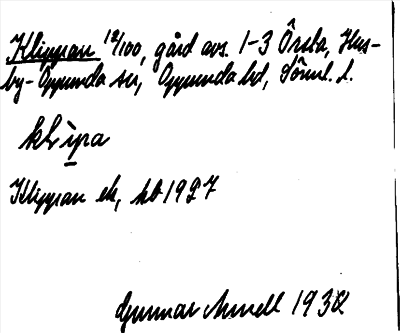 Klippan 12/100, gård avs. 1-3 Örsta, Hus-
by-Oppunda sn, Oppunda hd, Sörml. l.
Klippan ek, kb 1927
Gunnar 1932